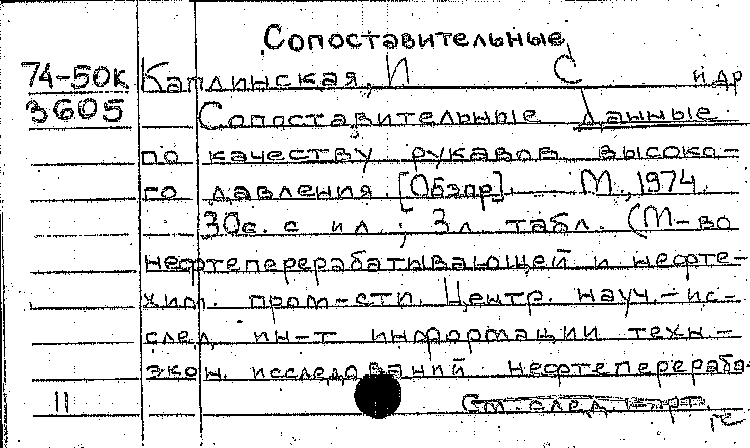 Сопоставительные
74-50к Каплинская, И С и др
3605 Сопоставительные данные
по качеству рукавов высоко-
го давления. [Обзор]. М., 1974.
30с. с ил.; 3л. табл. (М-во
нефтеперерабатывающей и нефте-
хим. пром-сти. Центр. науч.-ис-
след. ин-т информации техн.-
экон. исследований нефтеперерабо-
11 См. след. карт.